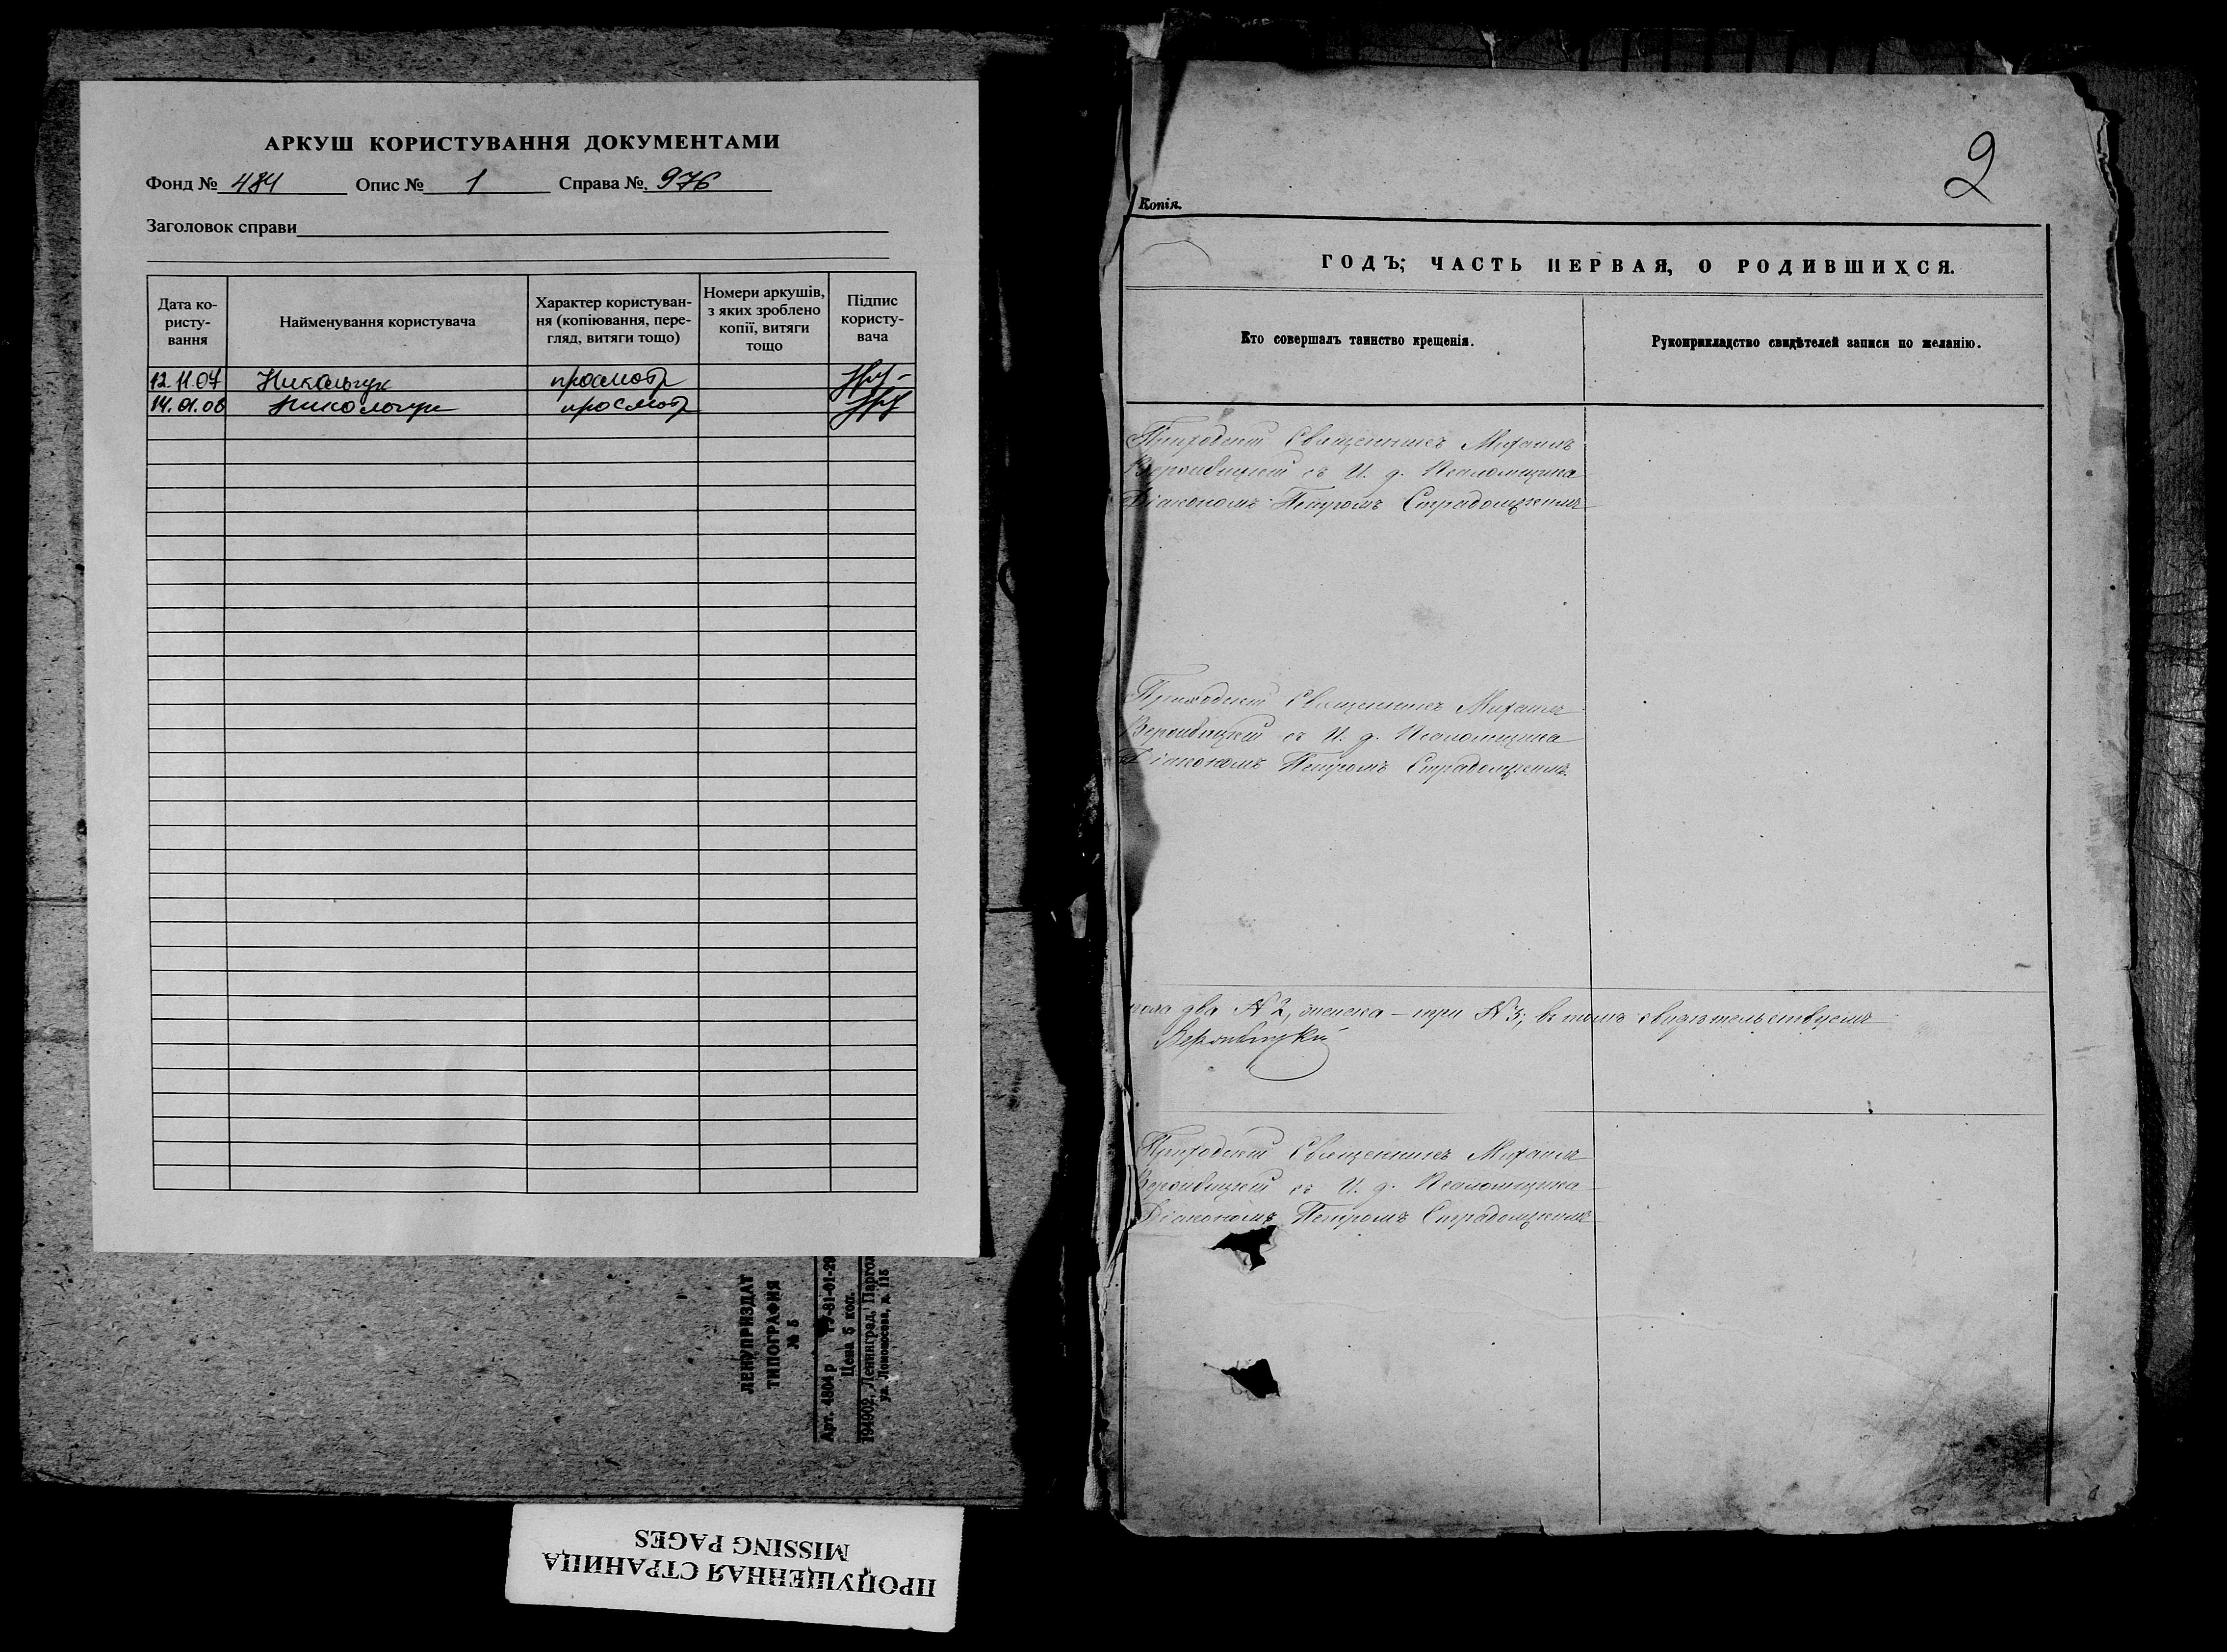 АРКУШ КОРИСТУВАННЯ ДОКУМЕНТАМИ
Фонд № 484 Опис № 1 Справа № 976
Заголовок справи
Дата ко-
ристу-
вання
Найменування користувача
Характер користуван-
ня (копіювання, пере-
гляд, витяги тощо)
Номери аркушів,
з яких зроблено
копії, витяги
тощо
Підпис
користу-
вача
12.11.07 просмотр
14.01.08 просмотр
ЛЕНУПРИЗДАТ
ТИПОГРАФИЯ
№ 5
Арт. 4804 р
Цена 5 коп.
194902, Ленинград,
ул. Ломоносова, д. 115
ПРОПУЩЕННАЯ СТРАНИЦА
MISSING PAGES
2
Копія.
ГОДЪ; ЧАСТЬ ПЕРВАЯ, О РОДИВШИХСЯ.
Кто совершалъ таинство крещенія.
Рукоприкладство свидѣтелей записи по желанію.
Приходскій Священникъ Михаилъ
съ И. д. Псаломщика
Діакономъ Петромъ Страдомскимъ
Приходскій Священникъ Михаилъ
съ И. д. Псаломщика
Діакономъ Петромъ Страдомскимъ
пола два № 2, женска – три № 3; въ томъ свидѣтельствуемъ
Приходскій Священникъ Михаилъ
съ И. д. Псаломщика
Діакономъ Петромъ Страдомскимъ